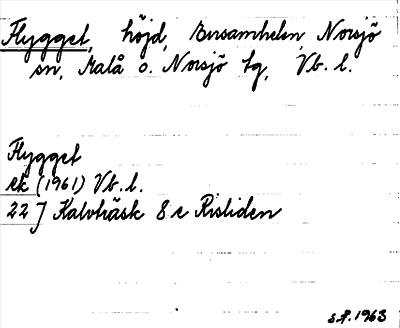 Flygget, höjd, Bursamheden, Norsjö
sn, Malå o. Norsjö tg, Vb. l.
Flygget
ek (1961) Vb. l.
22 J Kalvträsk 8 e Risliden
s.f. 1963